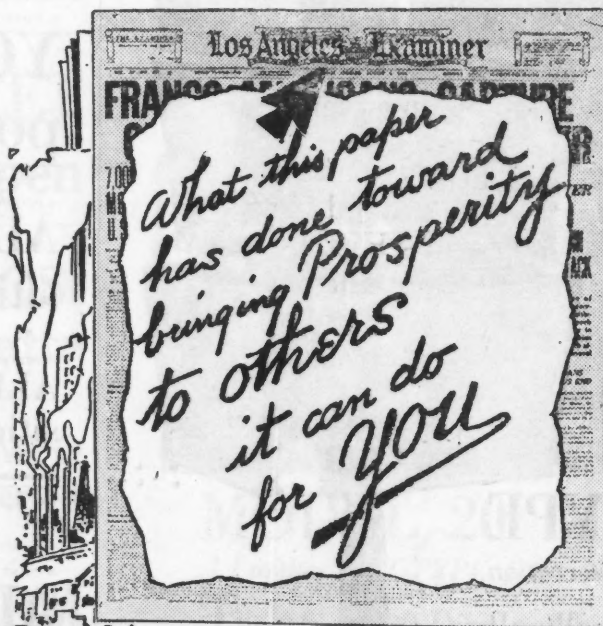 Los Angeles Examiner
What this paper
has done toward
bringing Prosperity
to others
it can do
for You